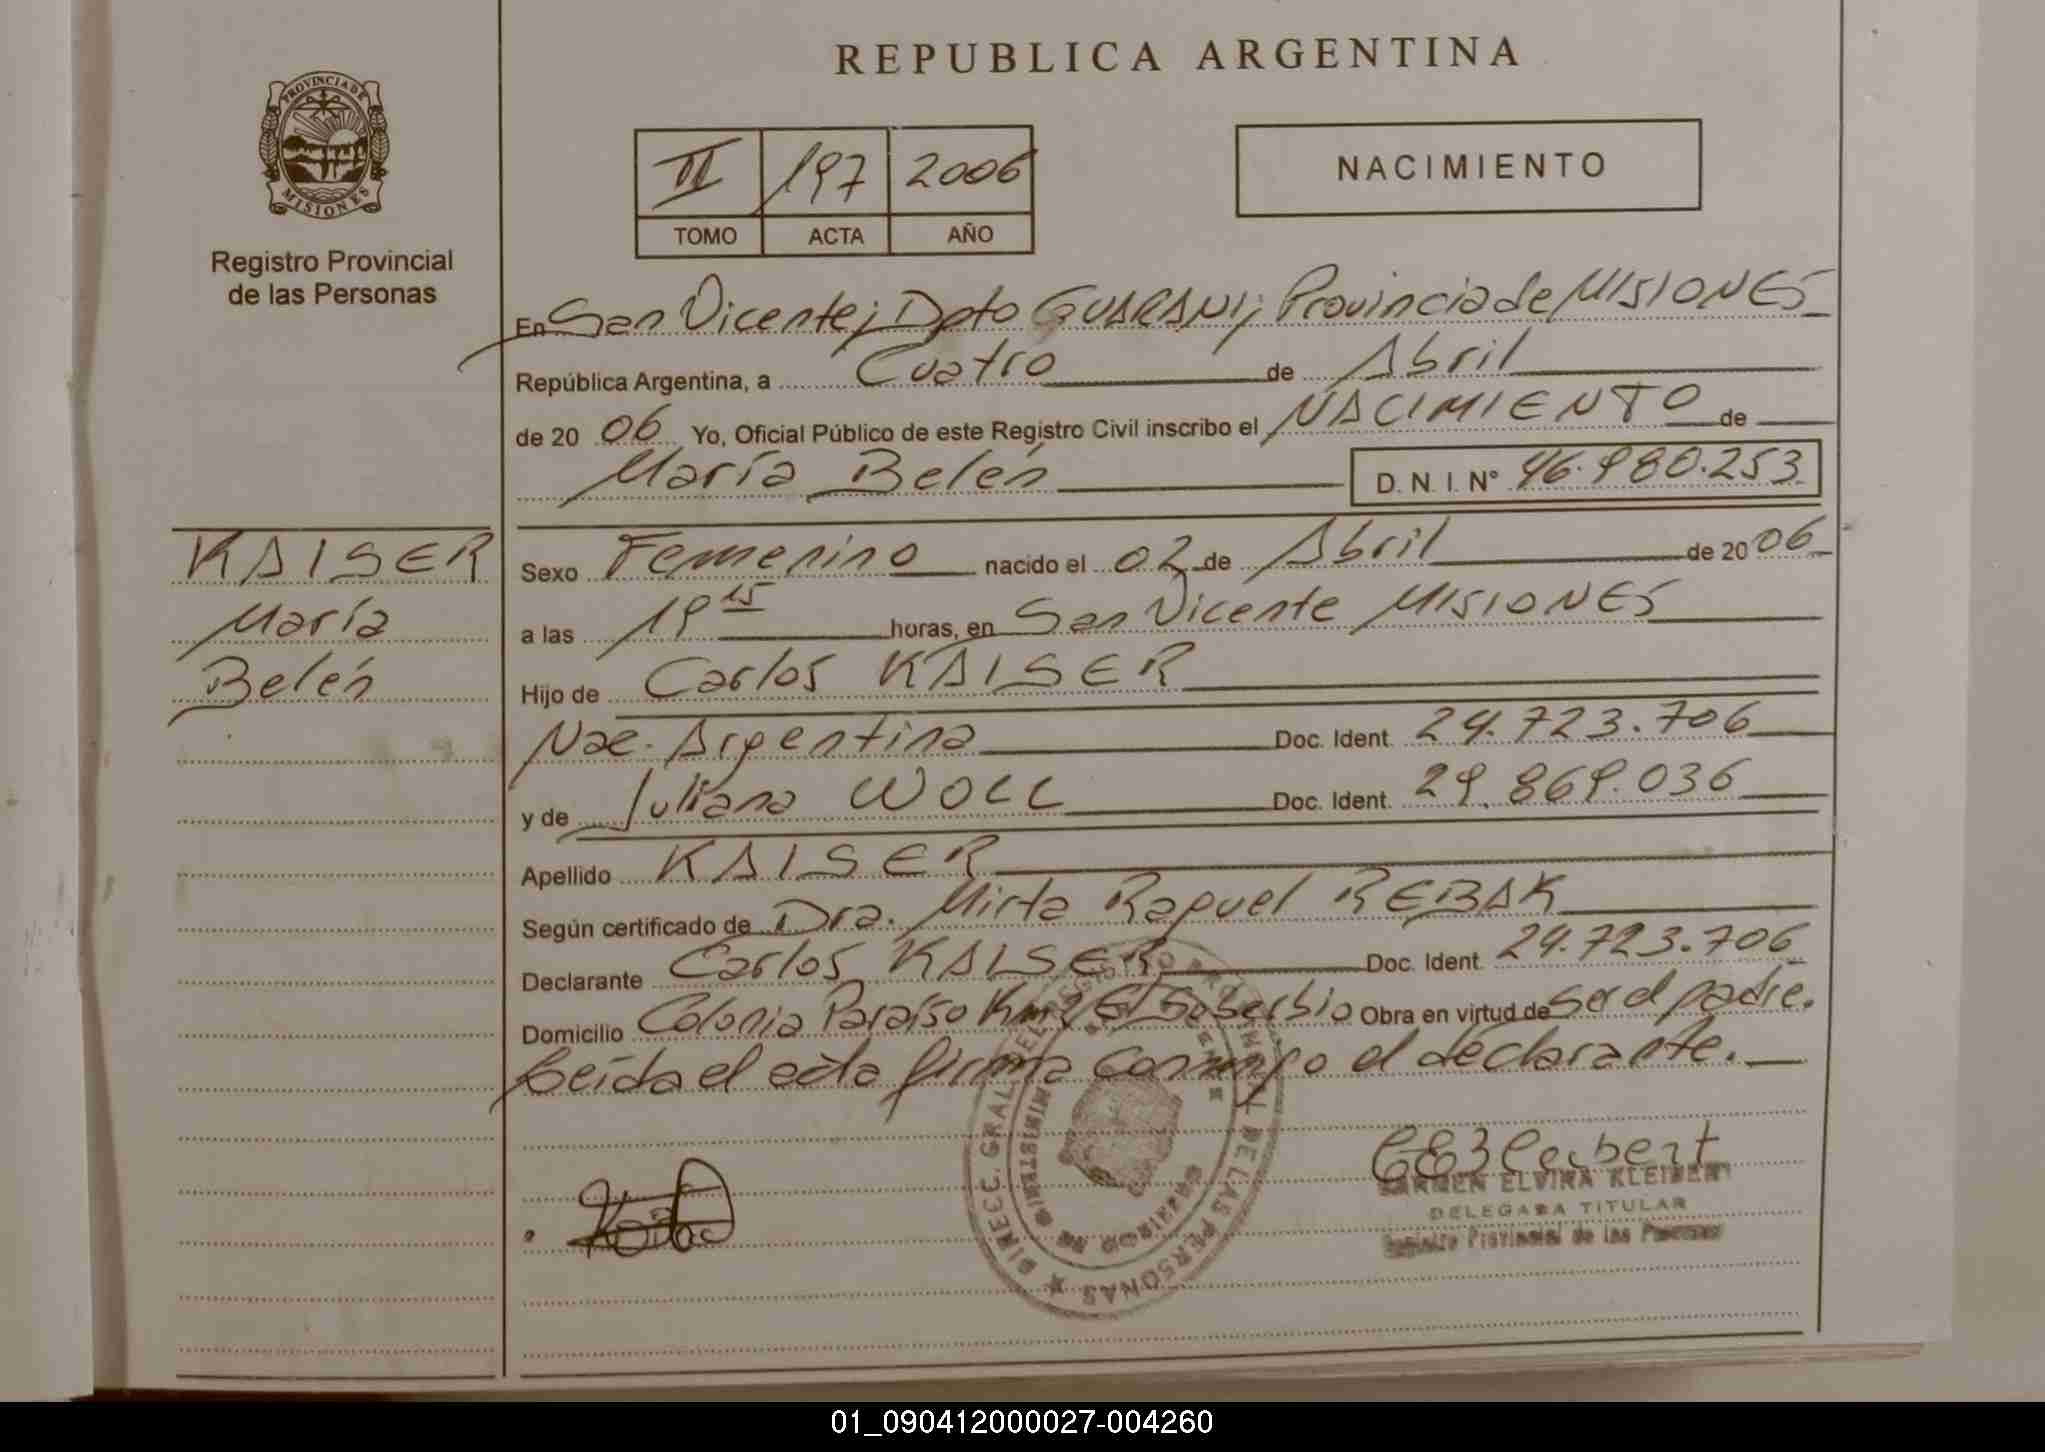 REPUBLICA ARGENTINA
PROVINCIA DE
MISIONES
Registro Provincial
de las Personas
II 197 2006
TOMO ACTA AÑO
NACIMIENTO
En San Vicente; Dpto GUARANI; Provincia de MISIONES
República Argentina, a Cuatro de Abril
de 20 06 Yo, Oficial Público de este Registro Civil inscribo el NACIMIENTO de
María Belén D. N. I. Nº 46.980.253
KAISER
María
Belén
Sexo Femenino nacido el 02 de Abril de 20 06
a las 19 15 horas, en San Vicente MISIONES
Hijo de Carlos KAISER
Nac. Argentina Doc. Ident. 24.723.706
y de Juliana WOLL Doc. Ident. 29.869.036
Apellido KAISER
Según certificado de Dra. Mirta Raquel REBAK
Declarante Carlos KAISER Doc. Ident. 24.723.706
Domicilio Colonia Paraíso Km El Soberbio Obra en virtud de ser el padre.
Leída el acta firma conmigo el declarante.
DIRECC. GRAL. DEL REGISTRO PROVINCIAL DE LAS PERSONAS
MINISTERIO DE GOBIERNO
CARMEN ELVIRA KLEIBERT
DELEGADA TITULAR
Registro Provincial de las Personas
01_090412000027-004260